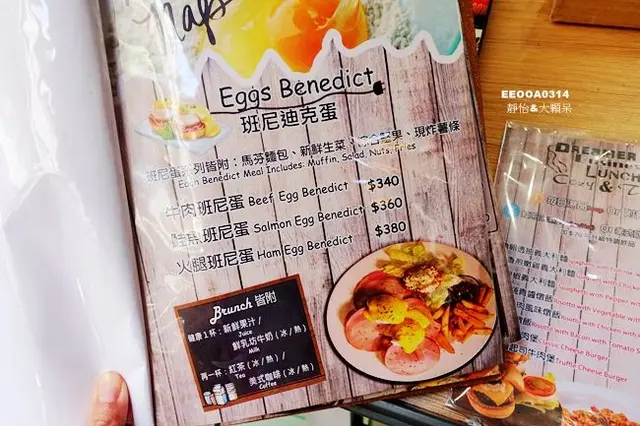 Eggs Benedict
班尼迪克蛋
班尼蛋系列皆附：馬芬麵包、新鮮生菜、綜合堅果、現炸薯條
Each Benedict Meal Includes: Muffin, Salad, Nuts, Fries
牛肉班尼蛋 Beef Egg Benedict $340
鮭魚班尼蛋 Salmon Egg Benedict $360
火腿班尼蛋 Ham Egg Benedict $380
Brunch 皆附
健康1杯：新鮮果汁/
Juice
鮮乳坊牛奶(冰/熱)
Milk
再一杯：紅茶(冰/熱)/
Tea
美式咖啡(冰/熱)
Coffee
EEOOA0314
靜怡&大顆呆
LUNCH
Cozy &
with Pepper
with Vegetable
with Chicken
Cheese Burger
Truffle Cheese Burger